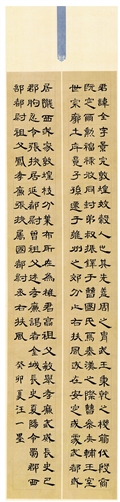 君諱全字景完敦煌效穀人也其先蓋周之胄武王秉乾之機翦伐殷商
既定爾勳福祿攸同封弟叔振鐸于曹國因氏焉秦漢之際曹參夾輔王室
世宗廓土斥竟子孫遷于雍州之郊分止右扶風或在安定或處武都或
居隴西或家敦煌枝分葉布所在為雄君高祖父敏舉孝廉武威長史巴
郡朐忍令張掖居延都尉曾祖父述孝廉謁者金城長史夏陽令蜀郡西
部都尉祖父鳳孝廉張掖屬國都尉丞右扶風 癸卯夏江一墨